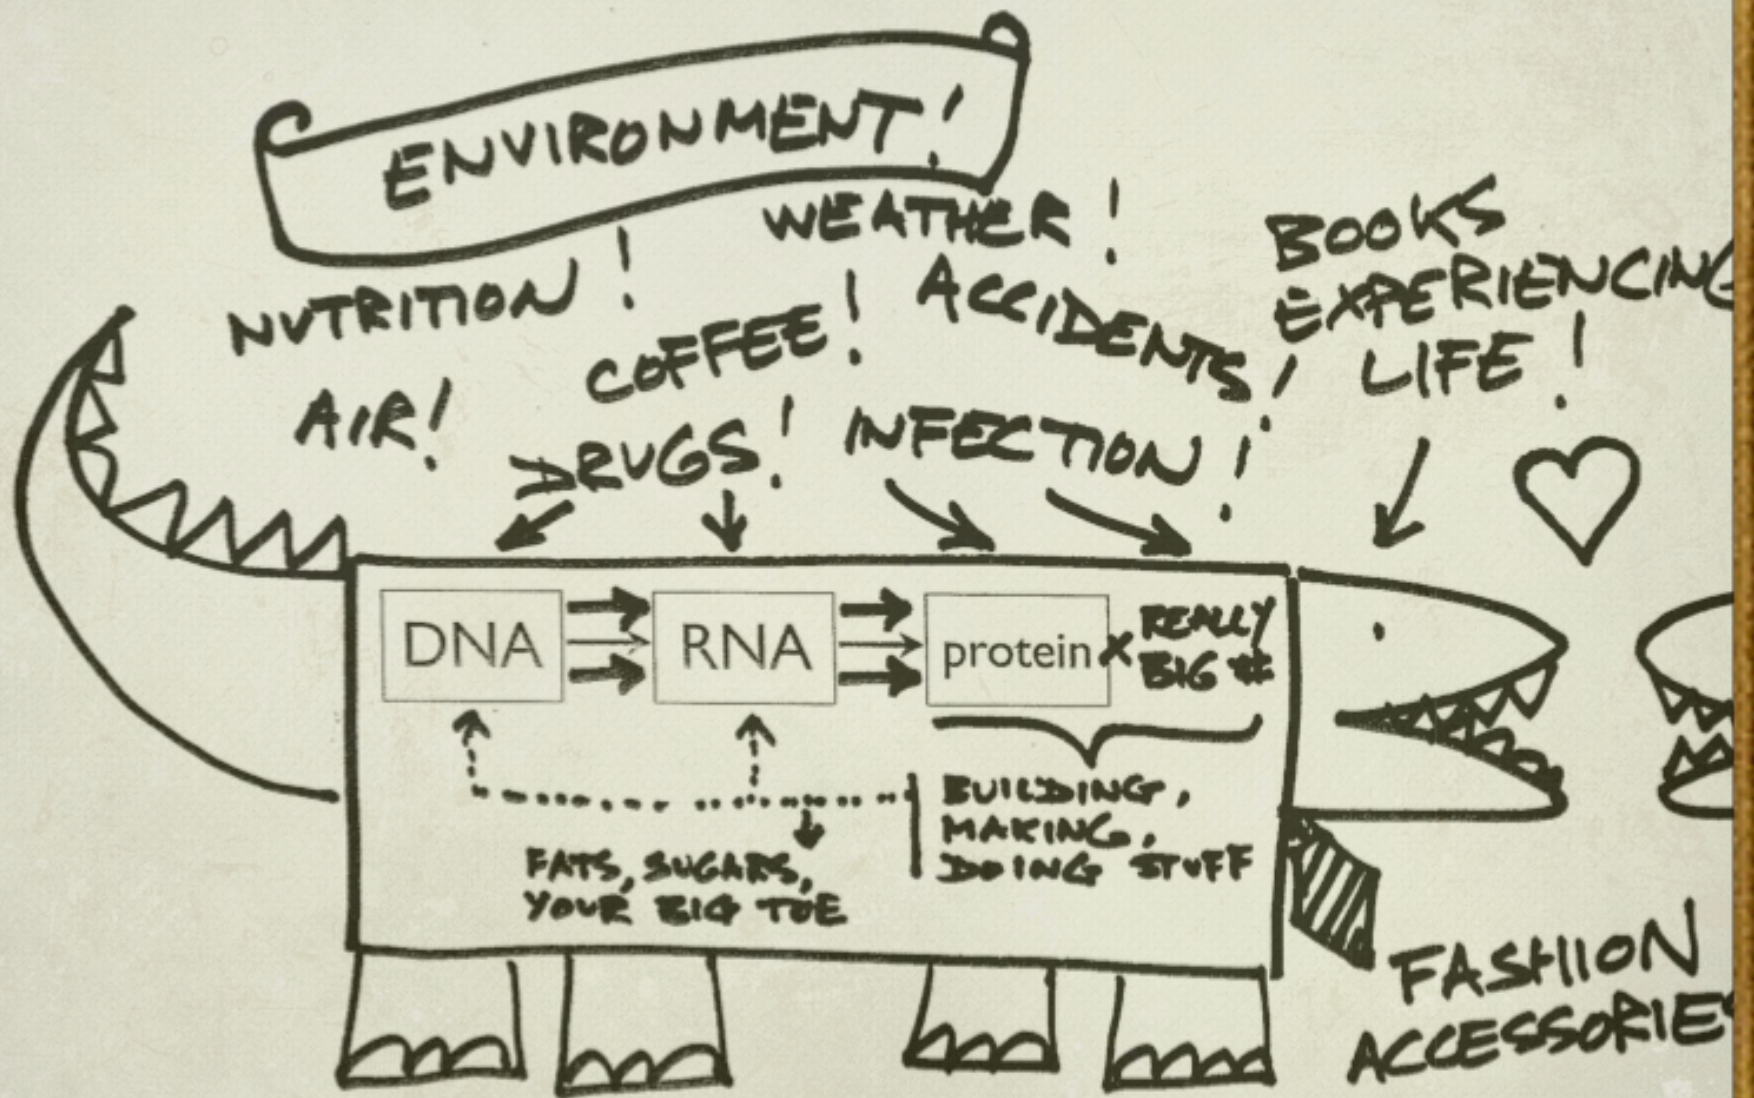 ENVIRONMENT!
WEATHER!
NUTRITION!
COFFEE!
ACCIDENTS!
BOOKS
EXPERIENCING
LIFE!
AIR!
DRUGS!
INFECTION!
DNA
RNA
protein
x REALLY
BIG #
BUILDING,
MAKING,
DOING STUFF
FATS, SUGARS,
YOUR BIG TOE
FASHION
ACCESSORIES